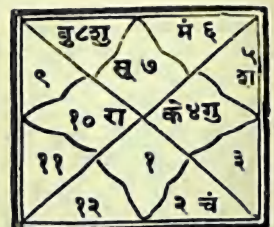 बु८शु मं ६
सू ७ ५
९ श
१० रा के४गु
११ १ ३
१२ २ चं